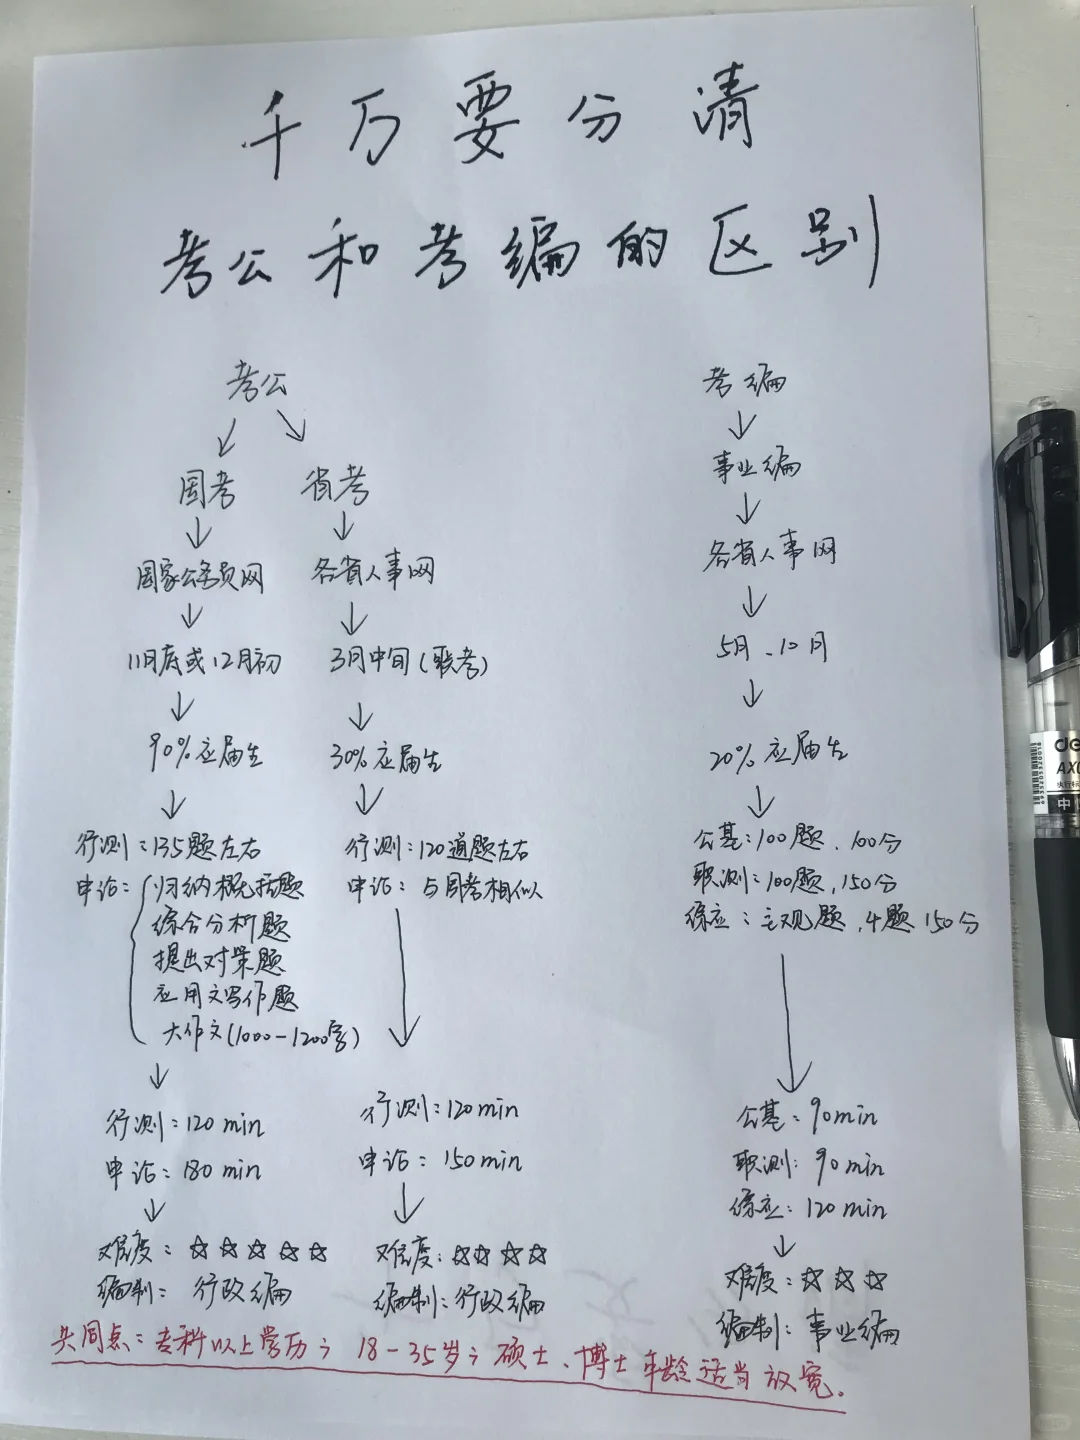 千万要分清
考公和考编的区别
考公
国考 省考
国家公务员网 各省人事网
11月底或12月初 3月中旬(联考)
90%应届生 30%应届生
行测:135题左右 行测:120道题左右
申论: 归纳概括题 申论:与国考相似
综合分析题
提出对策题
应用文写作题
大作文(1000-1200字)
行测:120min 行测:120min
申论:180min 申论:150min
难度:☆☆☆☆☆ 难度:☆☆☆☆
编制:行政编 编制:行政编
考编
事业编
各省人事网
5月、10月
20%应届生
公基:100题、100分
职测:100题,150分
综应:主观题,4题150分
公基:90min
职测:90min
综应:120min
难度:☆☆☆
编制:事业编
共同点:专科以上学历;18-35岁;硕士、博士年龄适当放宽.
de
AX
执行标
中